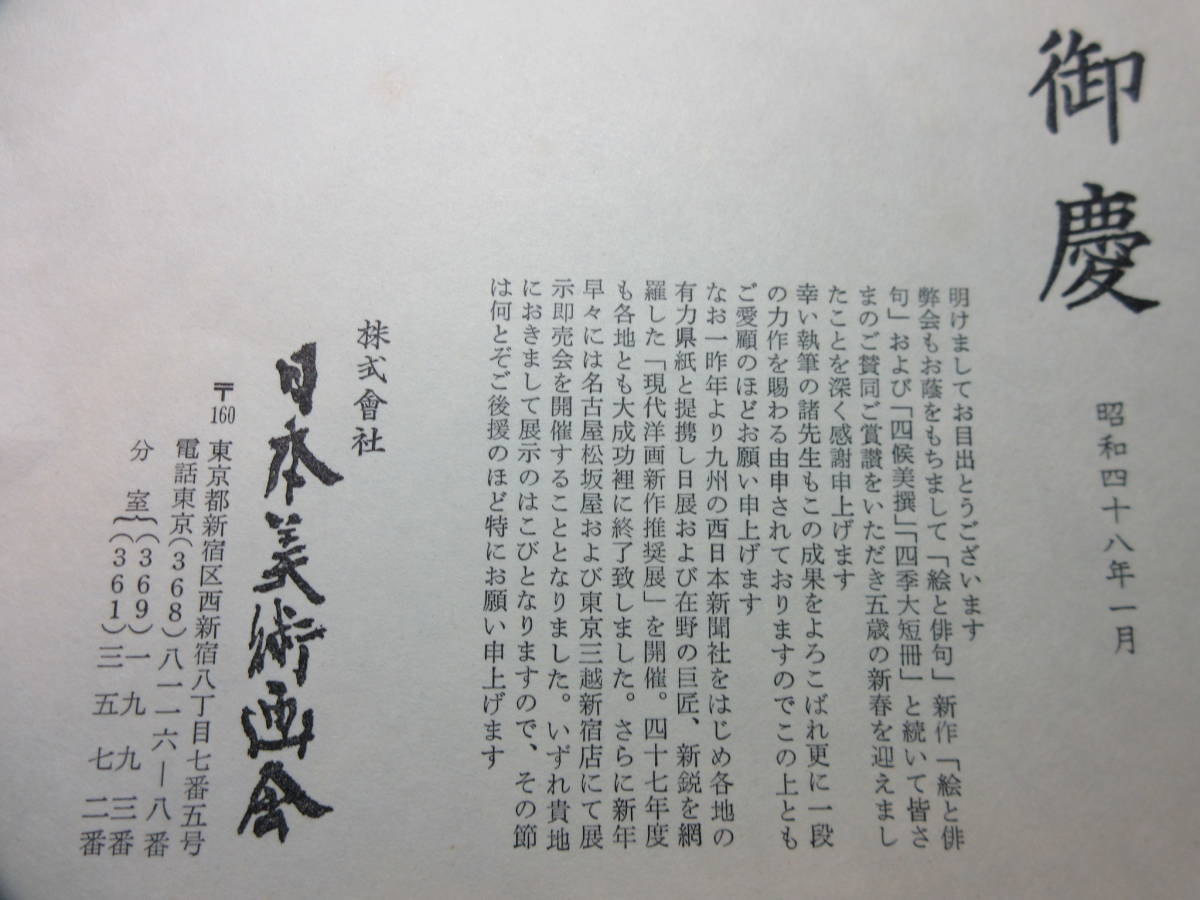 御慶
昭和四十八年一月
明けましてお目出とうございます
弊会もお蔭をもちまして「絵と俳句」新作「絵と俳
句」および「四候美撰」「四季大短冊」と続いて皆さ
まのご賛同ご賞讃をいただき五歳の新春を迎えまし
たことを深く感謝申上げます
幸い執筆の諸先生もこの成果をよろこばれ更に一段
の力作を賜わる由申されておりますのでこの上とも
ご愛顧のほどお願い申上げます
なお一昨年より九州の西日本新聞社をはじめ各地の
有力県紙と提携し日展および在野の巨匠、新鋭を網
羅した「現代洋画新作推奨展」を開催。四十七年度
も各地とも大成功裡に終了致しました。さらに新年
早々には名古屋松坂屋および東京三越新宿店にて展
示即売会を開催することとなりました。いずれ貴地
におきまして展示のはこびとなりますので、その節
は何とぞご後援のほど特にお願い申上げます
株式會社
日本美術画会
〒160 東京都新宿区西新宿八丁目七番五号
電話東京(368)八一一六―八番
分室{(369)一九九三番
(361)三五七二番